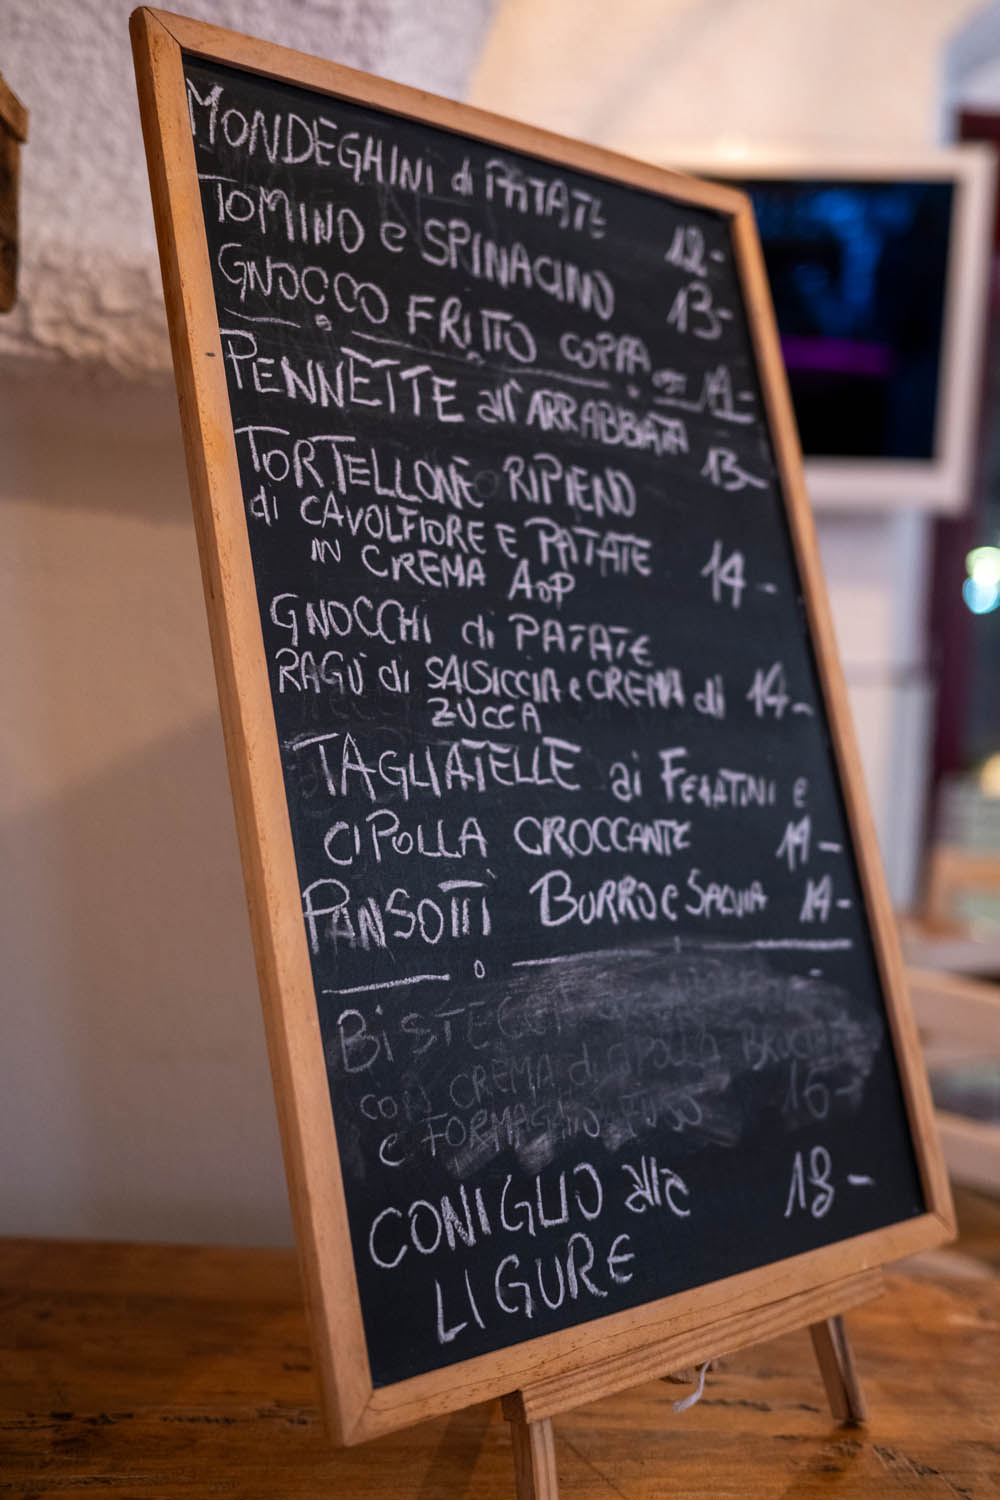 MONDEGHINI di PATATE 12-
TOMINO e SPINACINO 13-
GNOCCO FRITTO COPPA
PENNETTE all'ARRABBIATA 13-
TORTELLONE RIPIENO
di CAVOLFIORE E PATATE 14-
IN CREMA AOP
GNOCCHI di PATATE
RAGÙ di SALSICCIA e CREMA di 14-
ZUCCA
TAGLIATELLE ai e
CIPOLLA CROCCANTE 14-
PANSOTTI BURRO e SALVIA 14-
BISTECCA
CON CREMA di CIPOLLA
e FORMAGGIO FUSO 16-
CONIGLIO alla 18-
LIGURE